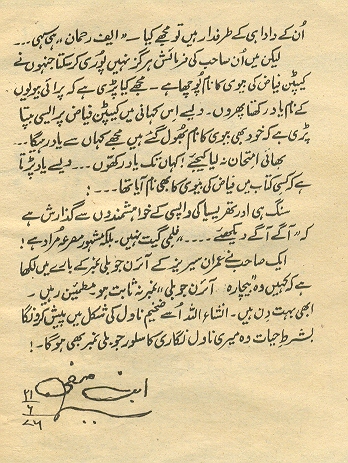 اُن کے دادا ہی کے طرفدار ہیں تو مجھے کیا۔ "ایف رحمان" ہی سہی...
لیکن میں اُن صاحب کی فرمائش ہرگز نہیں پوری کر سکتا جنہوں نے
کیپٹن فیاض کی بیوی کا نام پوچھا ہے۔ مجھے کیا پڑی ہے کہ پرائی بیویوں
کے نام یاد رکھتا پھروں۔ ویسے اِس کہانی میں کیپٹن فیاض پر ایسی بپتا
پڑی ہے کہ خود بھی بیوی کا نام بھول گئے ہیں مجھے کہاں سے یاد رہیگا۔
بھائی امتحان نہ لیا کیجئے! کہاں تک یاد رکھوں... ویسے یاد پڑتا
ہے کہ کسی کتاب میں فیاض کی بیوی کا بھی نام آیا تھا...!
سنگ ہی اور تھریسیا کی واپسی کے خواہشمندوں سے گذارش ہے
کہ "آگے آگے دیکھئے...." فلمی گیت نہیں۔ بلکہ مشہور مصرعہ مُراد ہے!
ایک صاحب نے عمران سیریز کے آئرن جوبلی نمبر کے بارے میں لکھا
ہے کہ کہیں وہ "بیچارہ آئرن جوبلی" نمبر نہ ثابت ہو۔ مطمئین رہیں۔
ابھی بہت دِن ہیں۔ انشاء اللہ اُسے ضخیم ناول کی شکل میں پیش کرونگا
بشرطِ حیات وہ میری ناول نگاری کا سلور جوبلی نمبر بھی ہوگا۔!
ابن صفی
۲۱
۶
۷۶